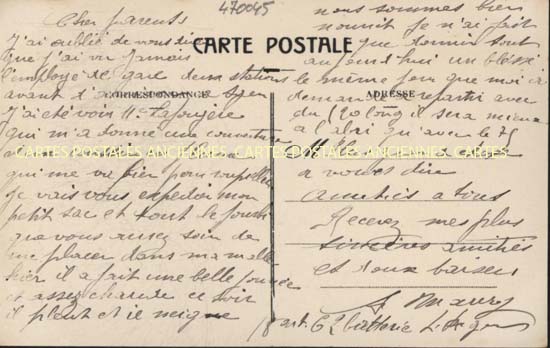 470045
CARTE POSTALE
CORRESPONDANCE
ADRESSE
CARTES POSTALES ANCIENNES CARTES POSTALES ANCIENNES CARTES
Cher parents
J'ai oublié de vous dire
que j'ai vu
l'employé de gare deux stations
avant d'
J'ai été voir Mr
qui m'a donné une couverture
qui me va bien pour
Je vais vous expédier mon
petit sac et tout le fourbi
que vous aurez soin de
me placer dans ma malle
hier il a fait une belle journée
et assez chaude ce soir
il pleut et il neige
nous sommes bien
nourrit je n'ai fait
que dormir tout
aujourd'hui un blessé
le même jour que moi a
demandé à repartir avec
du 120 long il sera mieux
à l'abri qu'avec le 75
à vous dire
amitiés à tous
Recevez mes plus
sincères amitiés
et doux baisers
62 batterie